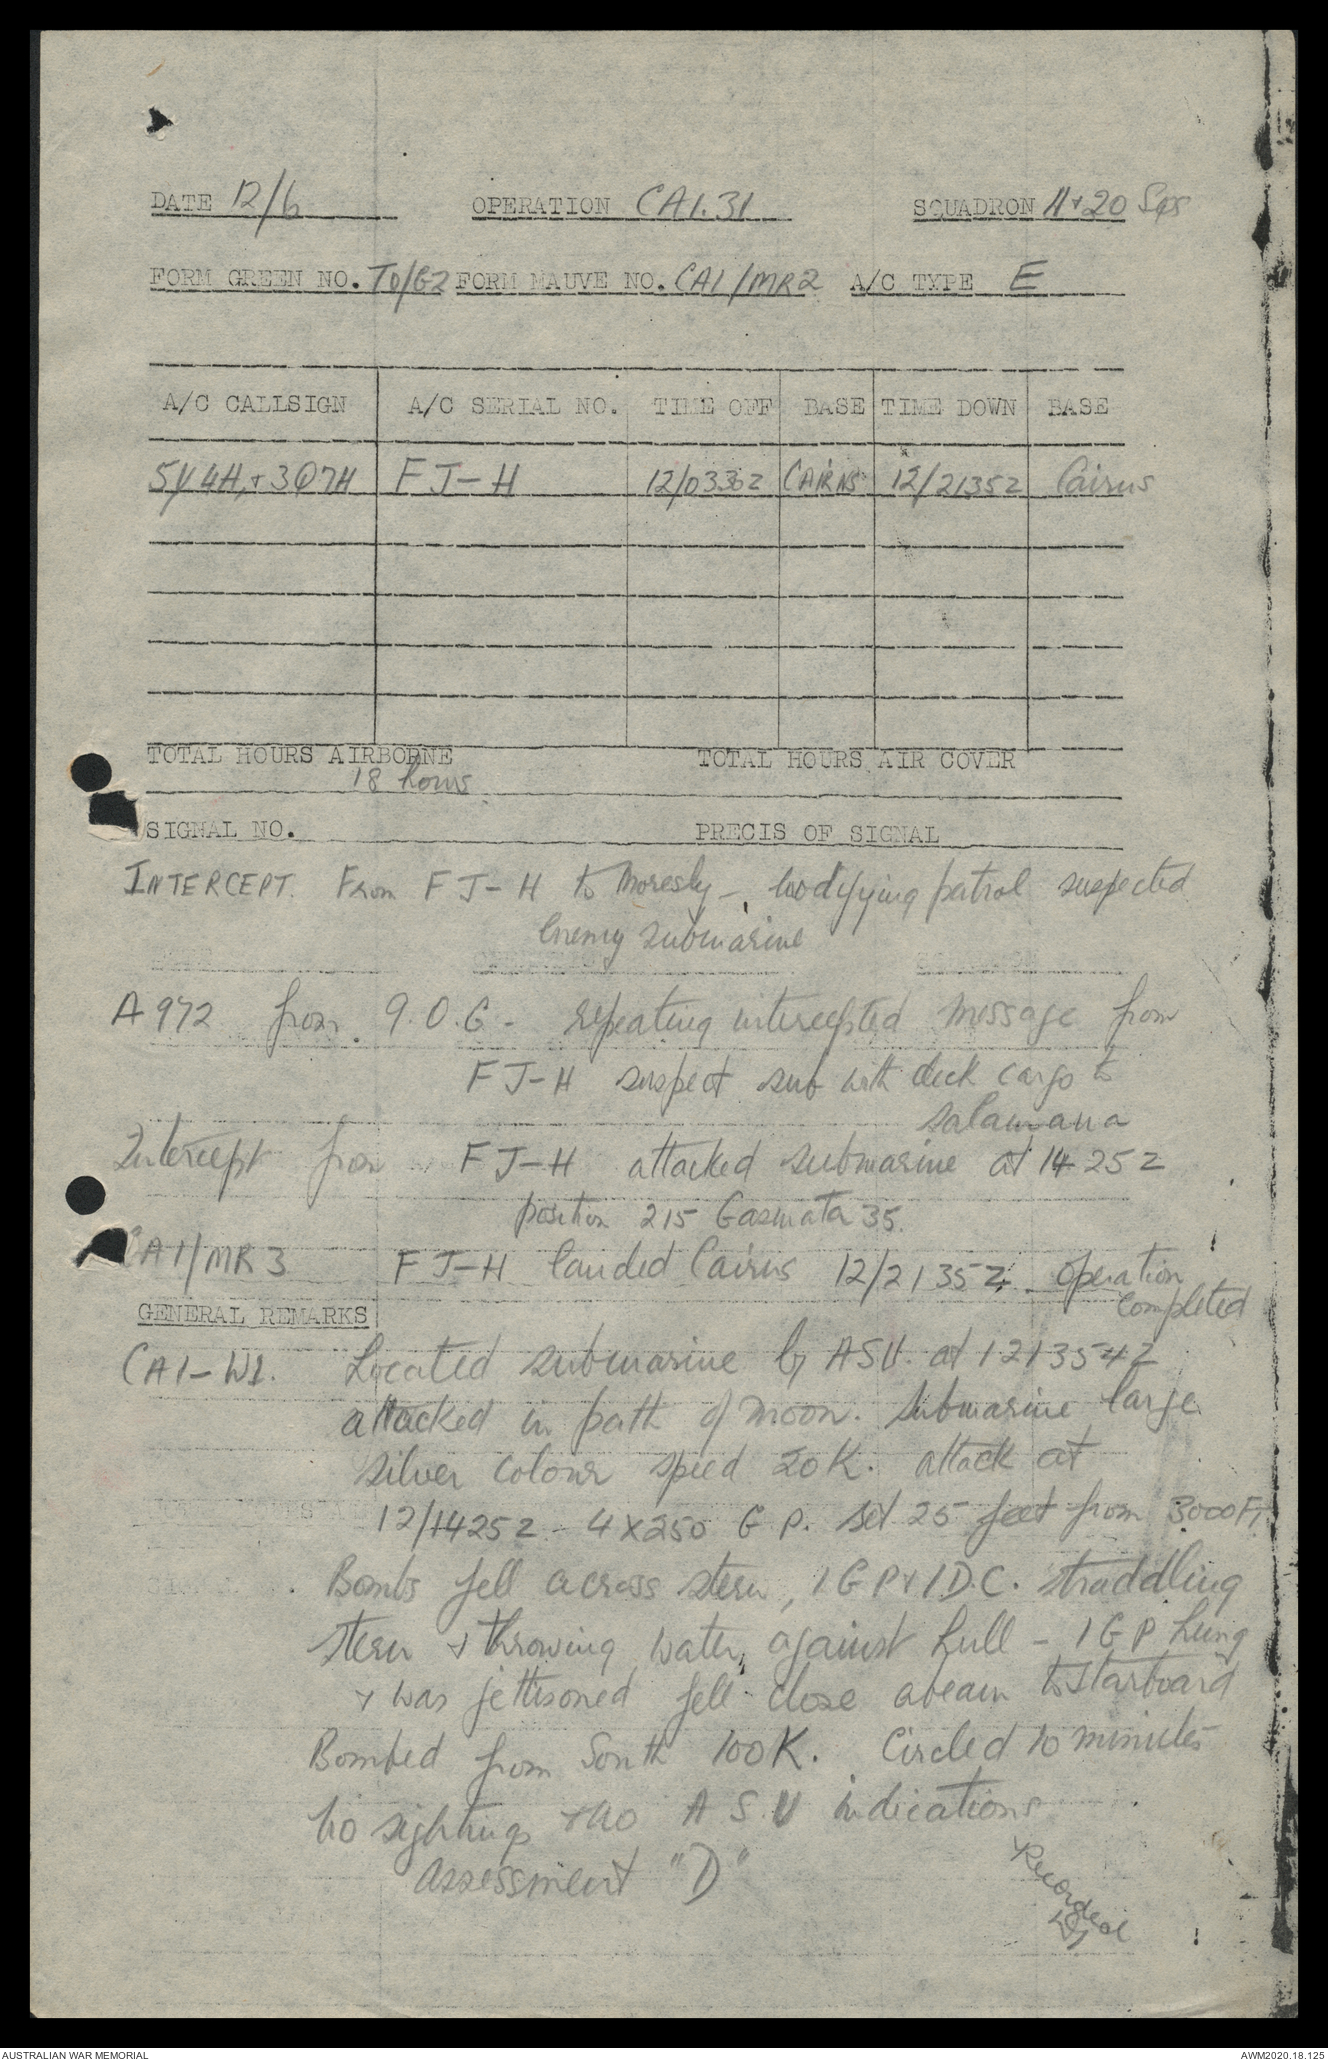 DATE 12/6 OPERATION CA1.31 SQUADRON 11+20 Sqs
FORM GREEN NO. TO/G2 FORM MAUVE NO. CA1/MR2 A/C TYPE E
A/C CALLSIGN A/C SERIAL NO. TIME OFF BASE TIME DOWN BASE
5Y4H,+3Q7H FJ-H 12/0335Z CAIRNS 12/2135Z Cairns
TOTAL HOURS AIRBORNE TOTAL HOURS AIR COVER
18 hours
SIGNAL NO. PRECIS OF SIGNAL
INTERCEPT. From FJ-H to Moresby - modifying patrol suspected
Enemy submarine
A972 from 9.O.G - repeating intercepted message from
FJ-H suspect sub with deck cargo to
Salamaua
Intercept from FJ-H attacked submarine at 1425Z
position 215 Gasmata 35.
CA1/MR3 FJ-H landed Cairns 12/2135Z. operation
completed
GENERAL REMARKS
CA1-W1. Located submarine by ASV. at 121354Z
attacked in path of moon. Submarine large
silver colour speed 20K. attack at
12/1425Z - 4X250 G P. set 25 feet from 3000FT
Bombs fell across stern, 1 G P + 1 D.C. straddling
stern & throwing water, against hull - 1 G P hung
& was jettisoned fell close abeam to starboard
Bombed from South 100K. Circled 10 minutes
No sightings & no A S.V indications
assessment "D"
Recorded